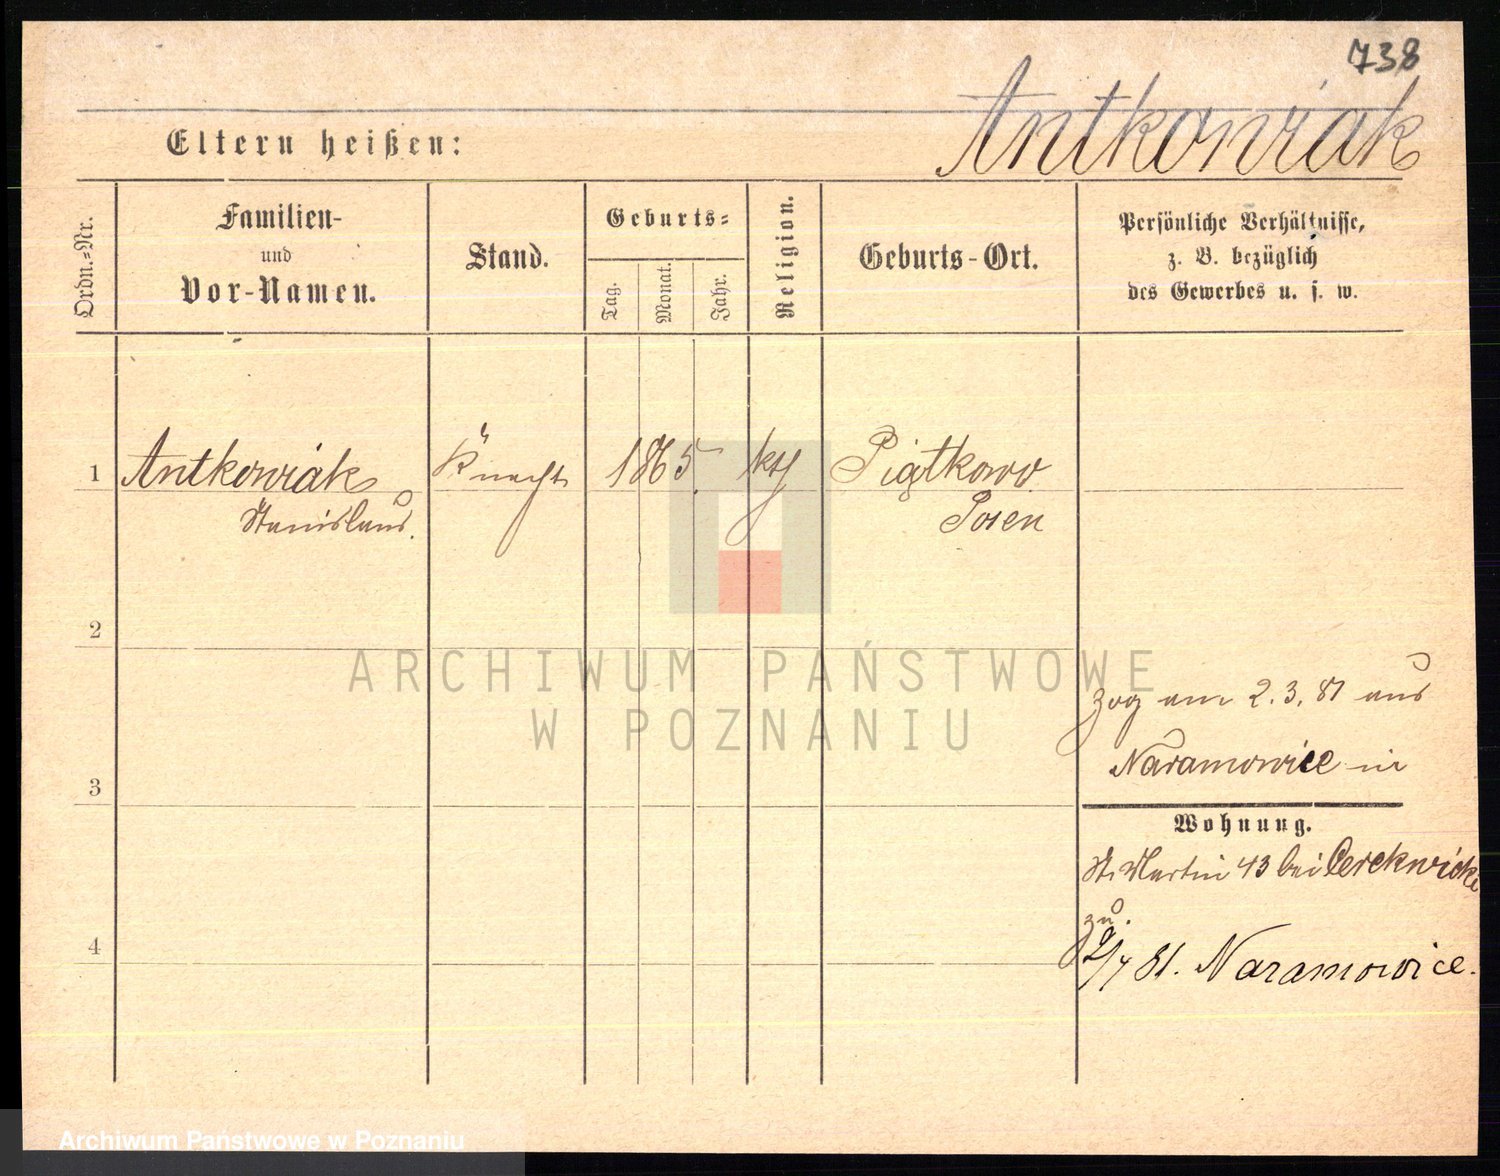 738
Antkowiak
Eltern heißen:
Ordn.-Nr.
Familien-
und
Vor-Namen.
Stand.
Geburts-
Tag.
Monat.
Jahr.
Religion.
Geburts-Ort.
Persönliche Verhältnisse,
z. B. bezüglich
des Gewerbes u. s. w.
1 Antkowiak Knecht 1865. kth Piątkowo
Stanislaus. Posen
2
ARCHIWUM PAŃSTWOWE
W POZNANIU
zog am 2.3.81 aus
Naramowice in
3
Wohnung.
St. Martin 43 bei Cerekwicka
zu.
4
2/7 81. Naramowice.
Archiwum Państwowe w Poznaniu